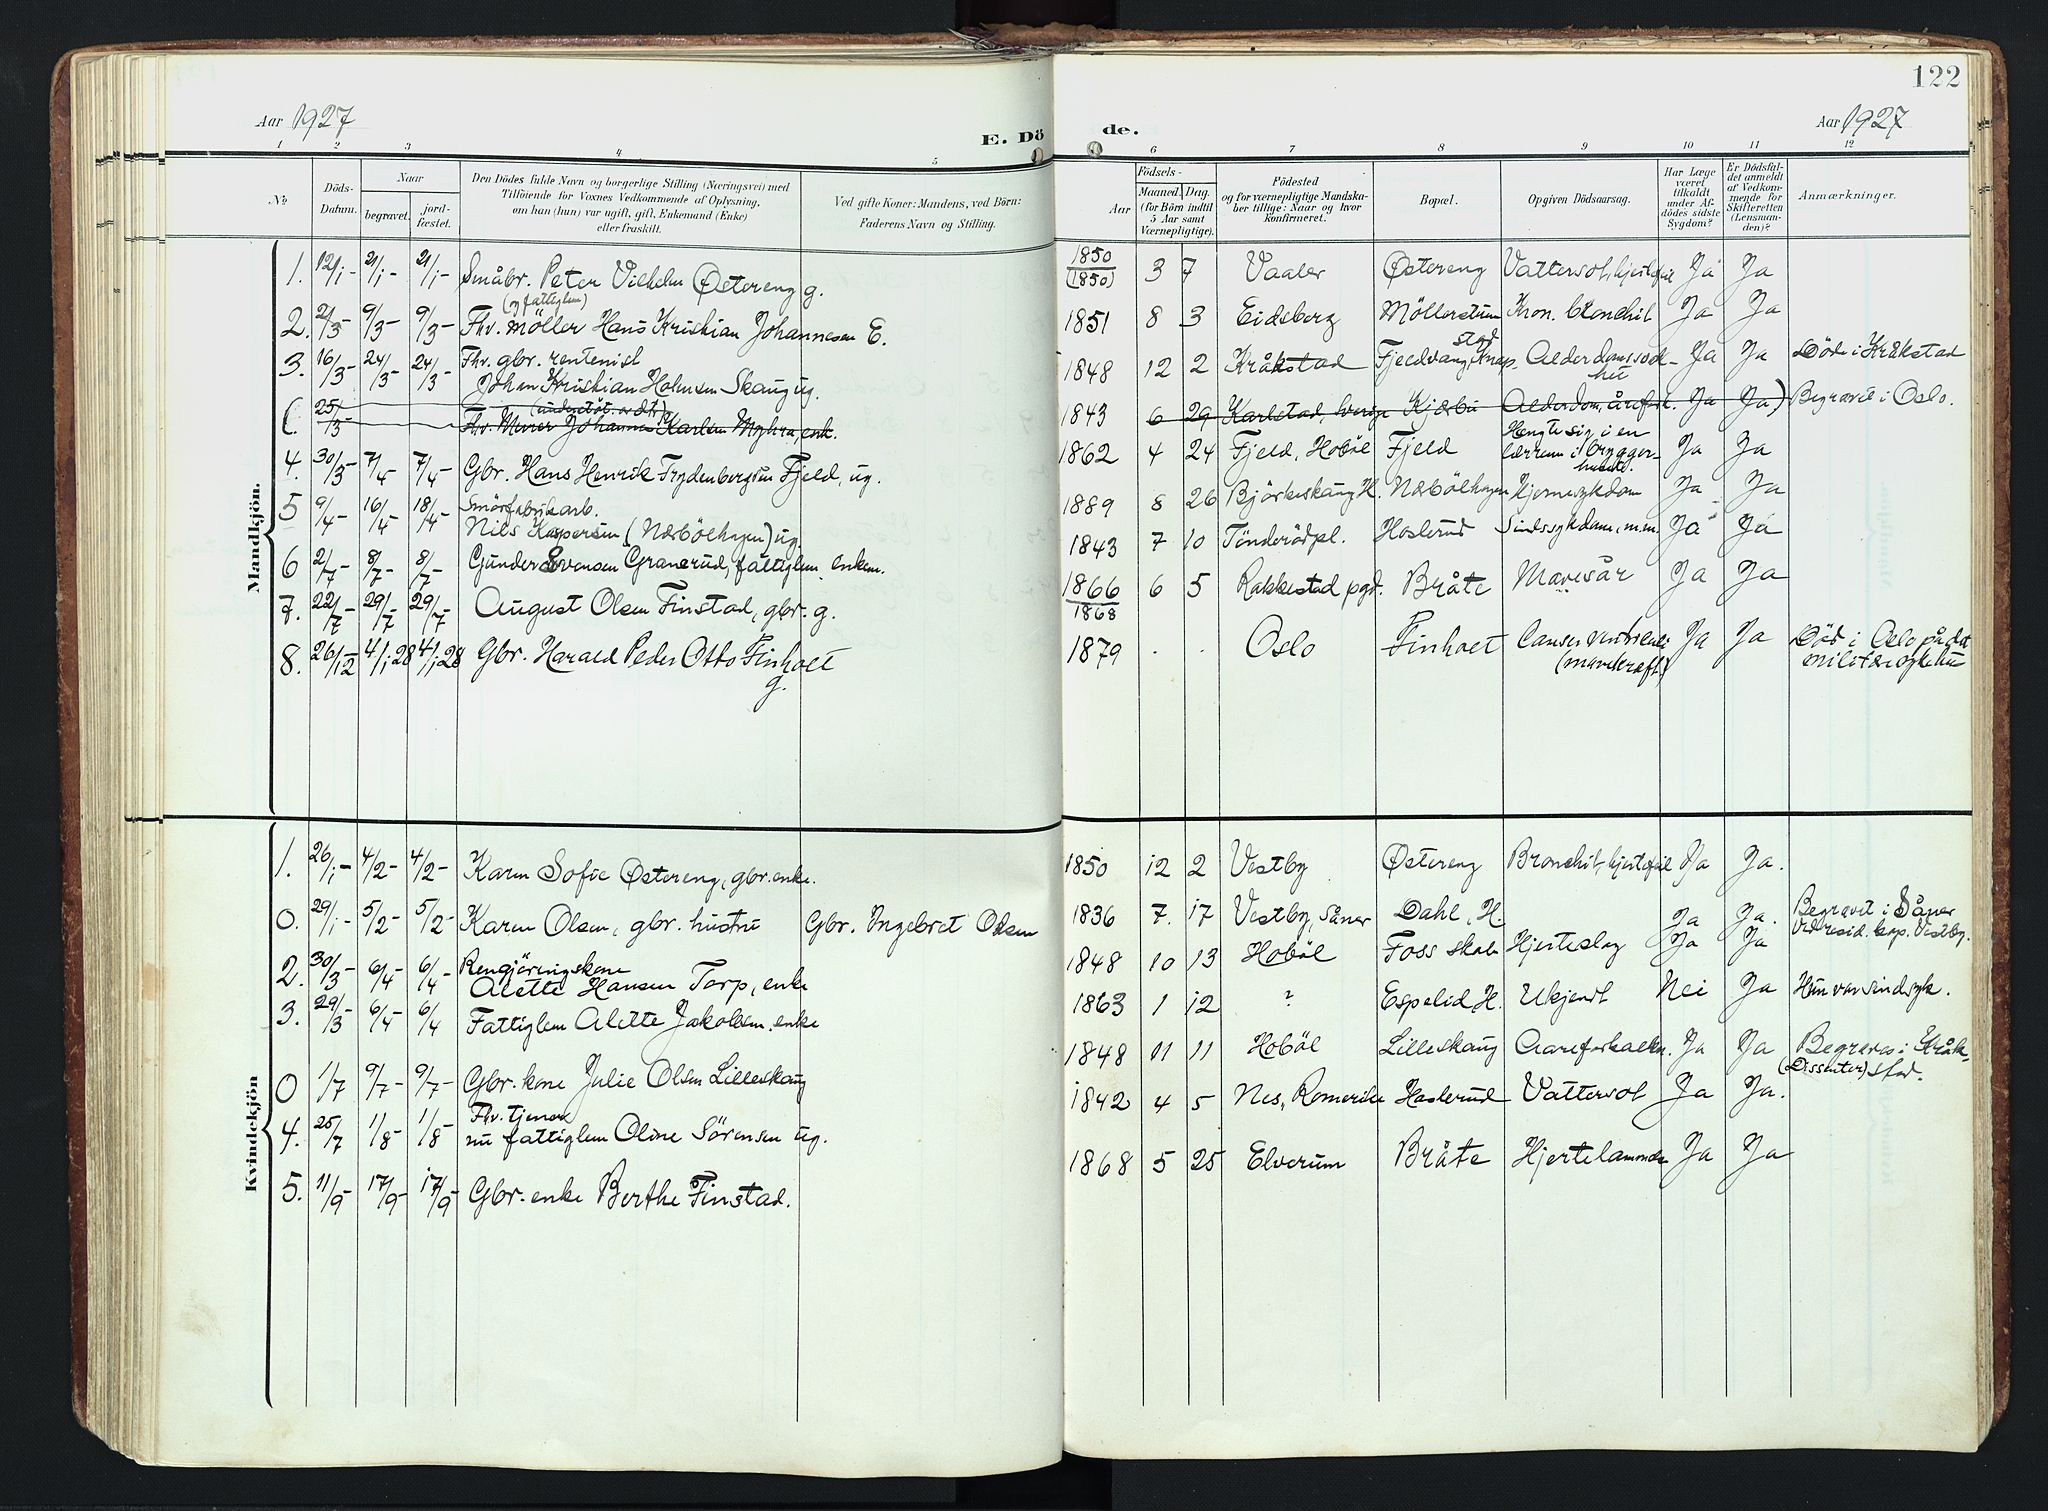 122
Aar 1927
E. Dö
de.
Aar 1927
1 2 3 4 5 6 7 8 9 10 11 12
No
Döds-
Datum.
Naar
begravet.
jord-
fæstet.
Den Dödes fulde Navn og borgerlige Stilling (Næringsvei) med
Tilföiende for Voxnes Vedkommende af Oplysning,
om han (hun) var ugift, gift, Enkemand (Enke)
eller fraskilt.
Ved gifte Koner: Mandens, ved Börn:
Faderens Navn og Stilling.
Födsels-
Aar
Maaned. Dag.
(for Börn indtil
5 Aar samt
Værnepligtige).
Födested
og for værnepligtige Mandska-
ber tillige: Naar og hvor
Konfirmeret.
Bopæl.
Opgiven Dödsaarsag.
Har Læge
været
tilkaldt
under Af-
dödes sidste
Sygdom?
Er Dödsfal-
det anmeldt
af Vedkom-
mende for
Skifteretten
(Lensman-
den)?
Anmærkninger.
Mandkjön.
1. 12/1- 21/1- 21/1- Småbr. Peter Vilhelm Østereng g. 1850 (1850) 3 7 Vaaler Østereng Vattersot, hjertefeil Ja Ja
(og fattiglem)
2. 2/3- 9/3- 9/3- Fhv. Möller Hans Kristian Johannesen E. 1851 8 3 Eidsberg Möllerstuen Kron. bronchit Ja Ja
3. 16/3- 24/3- 24/3- Fhv. gbr. rentenist
Johan Kristian Holmsen Skaug ug. 1848 12 2 Kråkstad Fjeldvang, Knap-
stad Alderdomssvak-
het Ja Ja Döde i Kråkstad
(understöt. av dtk)
( 25/3 Fhv. Murer Johannes Karlsen Myhra, enk. 1843 6 29 Karlstad, Sverige Kjærbu Alderdom, årefork. Ja Ja) Begravet i Oslo.
4. 30/3- 7/4- 7/4- Gbr. Hans Henrik Frydenbergsen Fjeld, ug. 1862 4 24 Fjeld, Hoböl Fjeld Hengte sig i en
lærrem i brygger-
huset. Ja Ja
5 9/4- 16/4- 18/4- Smörfabrikarb.
Nils Kaspersen (Næsbölhagen) ug 1889 8 26 Björkeskaug H. Næsbölhagen Hjernesykdom Ja Ja
6 2/7- 8/7- 8/7 Gunder Svensen Granerud, fattiglem, enkem. 1843 7 10 Tönderödpl. Haslerud Sindssykdom, m.m. Ja Ja
7. 22/7- 29/7- 29/7- August Olsen Finstad, gbr. g. 1866 1868 6 5 Rakkestad pgd. Bråte Mavesår Ja Ja
8. 26/12 4/1 28 4/1 28 Gbr. Harald Peder Otto Finholt
g. 1879 . . Oslo Finholt Cancer ventriculi
(mavekræft) Ja Ja Död i Oslo på det
militære sykehus
Kvindekjön
1. 26/1- 4/2- 4/2- Karen Sofie Østereng, gbr. enke. 1850 12 2 Vestby Østereng Bronchit, hjertefeil Ja Ja.
0. 29/1- 5/2- 5/2- Karen Olsen, gbr. hustru Gbr. Ingebret Olsen 1836 7. 17 Vestby, Såner Dahl, H. Ja Ja. Begravet i Såner
ved resid. kap. Vestby.
2. 30/3- 6/4- 6/4 Rengjöringskone
Alette Hansen Torp, enke 1848 10 13 Hoböl Foss skole Hjerteslag Ja Ja
3. 29/3 6/4 6/4 Fattiglem Alette Jakobsen, enke 1863 1 12 ? Espelid H. Ukjendt Nei Ja Hun var sindsyk.
0 1/7 9/7- 9/7- Gbr. kone Julie Olsen Lilleskaug 1848 11 11 Hoböl Lilleskaug Aareforkalkn. Ja Ja Begraves i Kråk-
(Dissenter) stad.
4. 25/7 1/8- 1/8- Fhv. tjener
nu fattiglem Oline Sörensen ug. 1842 4 5 Nes, Romerike Haslerud Vattersot Ja Ja.
5. 11/9- 17/9- 17/9- Gbr. enke Berthe Finstad. 1868 5 25 Elverum Bråte Hjertelammelse Ja Ja